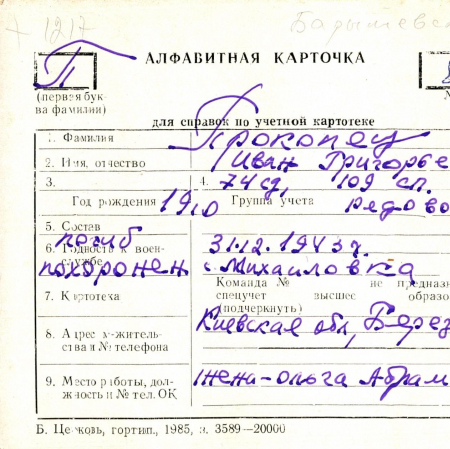 1217
Бадышевск
П
АЛФАВИТНАЯ КАРТОЧКА
(первая бук-
ва фамилии)
для справок по учетной картотеке
1. Фамилия Прокопец
2. Имя, отчество Иван Григорье
3. 4. 74 сд, 109 сп.
Год рождения 1910 Группа учета рядово
5. Состав погиб
6. Годность к воен- 31.12.1943 г.
службе похоронен с. Михайловка
Команда № не предназн
7. Картотека спецучет высшес образо
(подчеркнуть)
8. Адрес жительс- Киевская обл, Берез
тва и № телефона
9. Место работы, дол- жена - Ольга Абрам
жность и № тел. ОК
Б. Церковь, гортип., 1985, з. 3589—20000